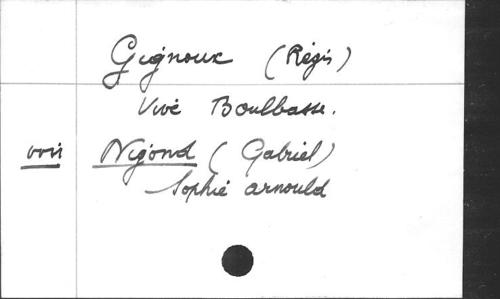 Gignoux (Régis)
Vive Boulbasse.
voir Nigond (Gabriel)
Sophie Arnould